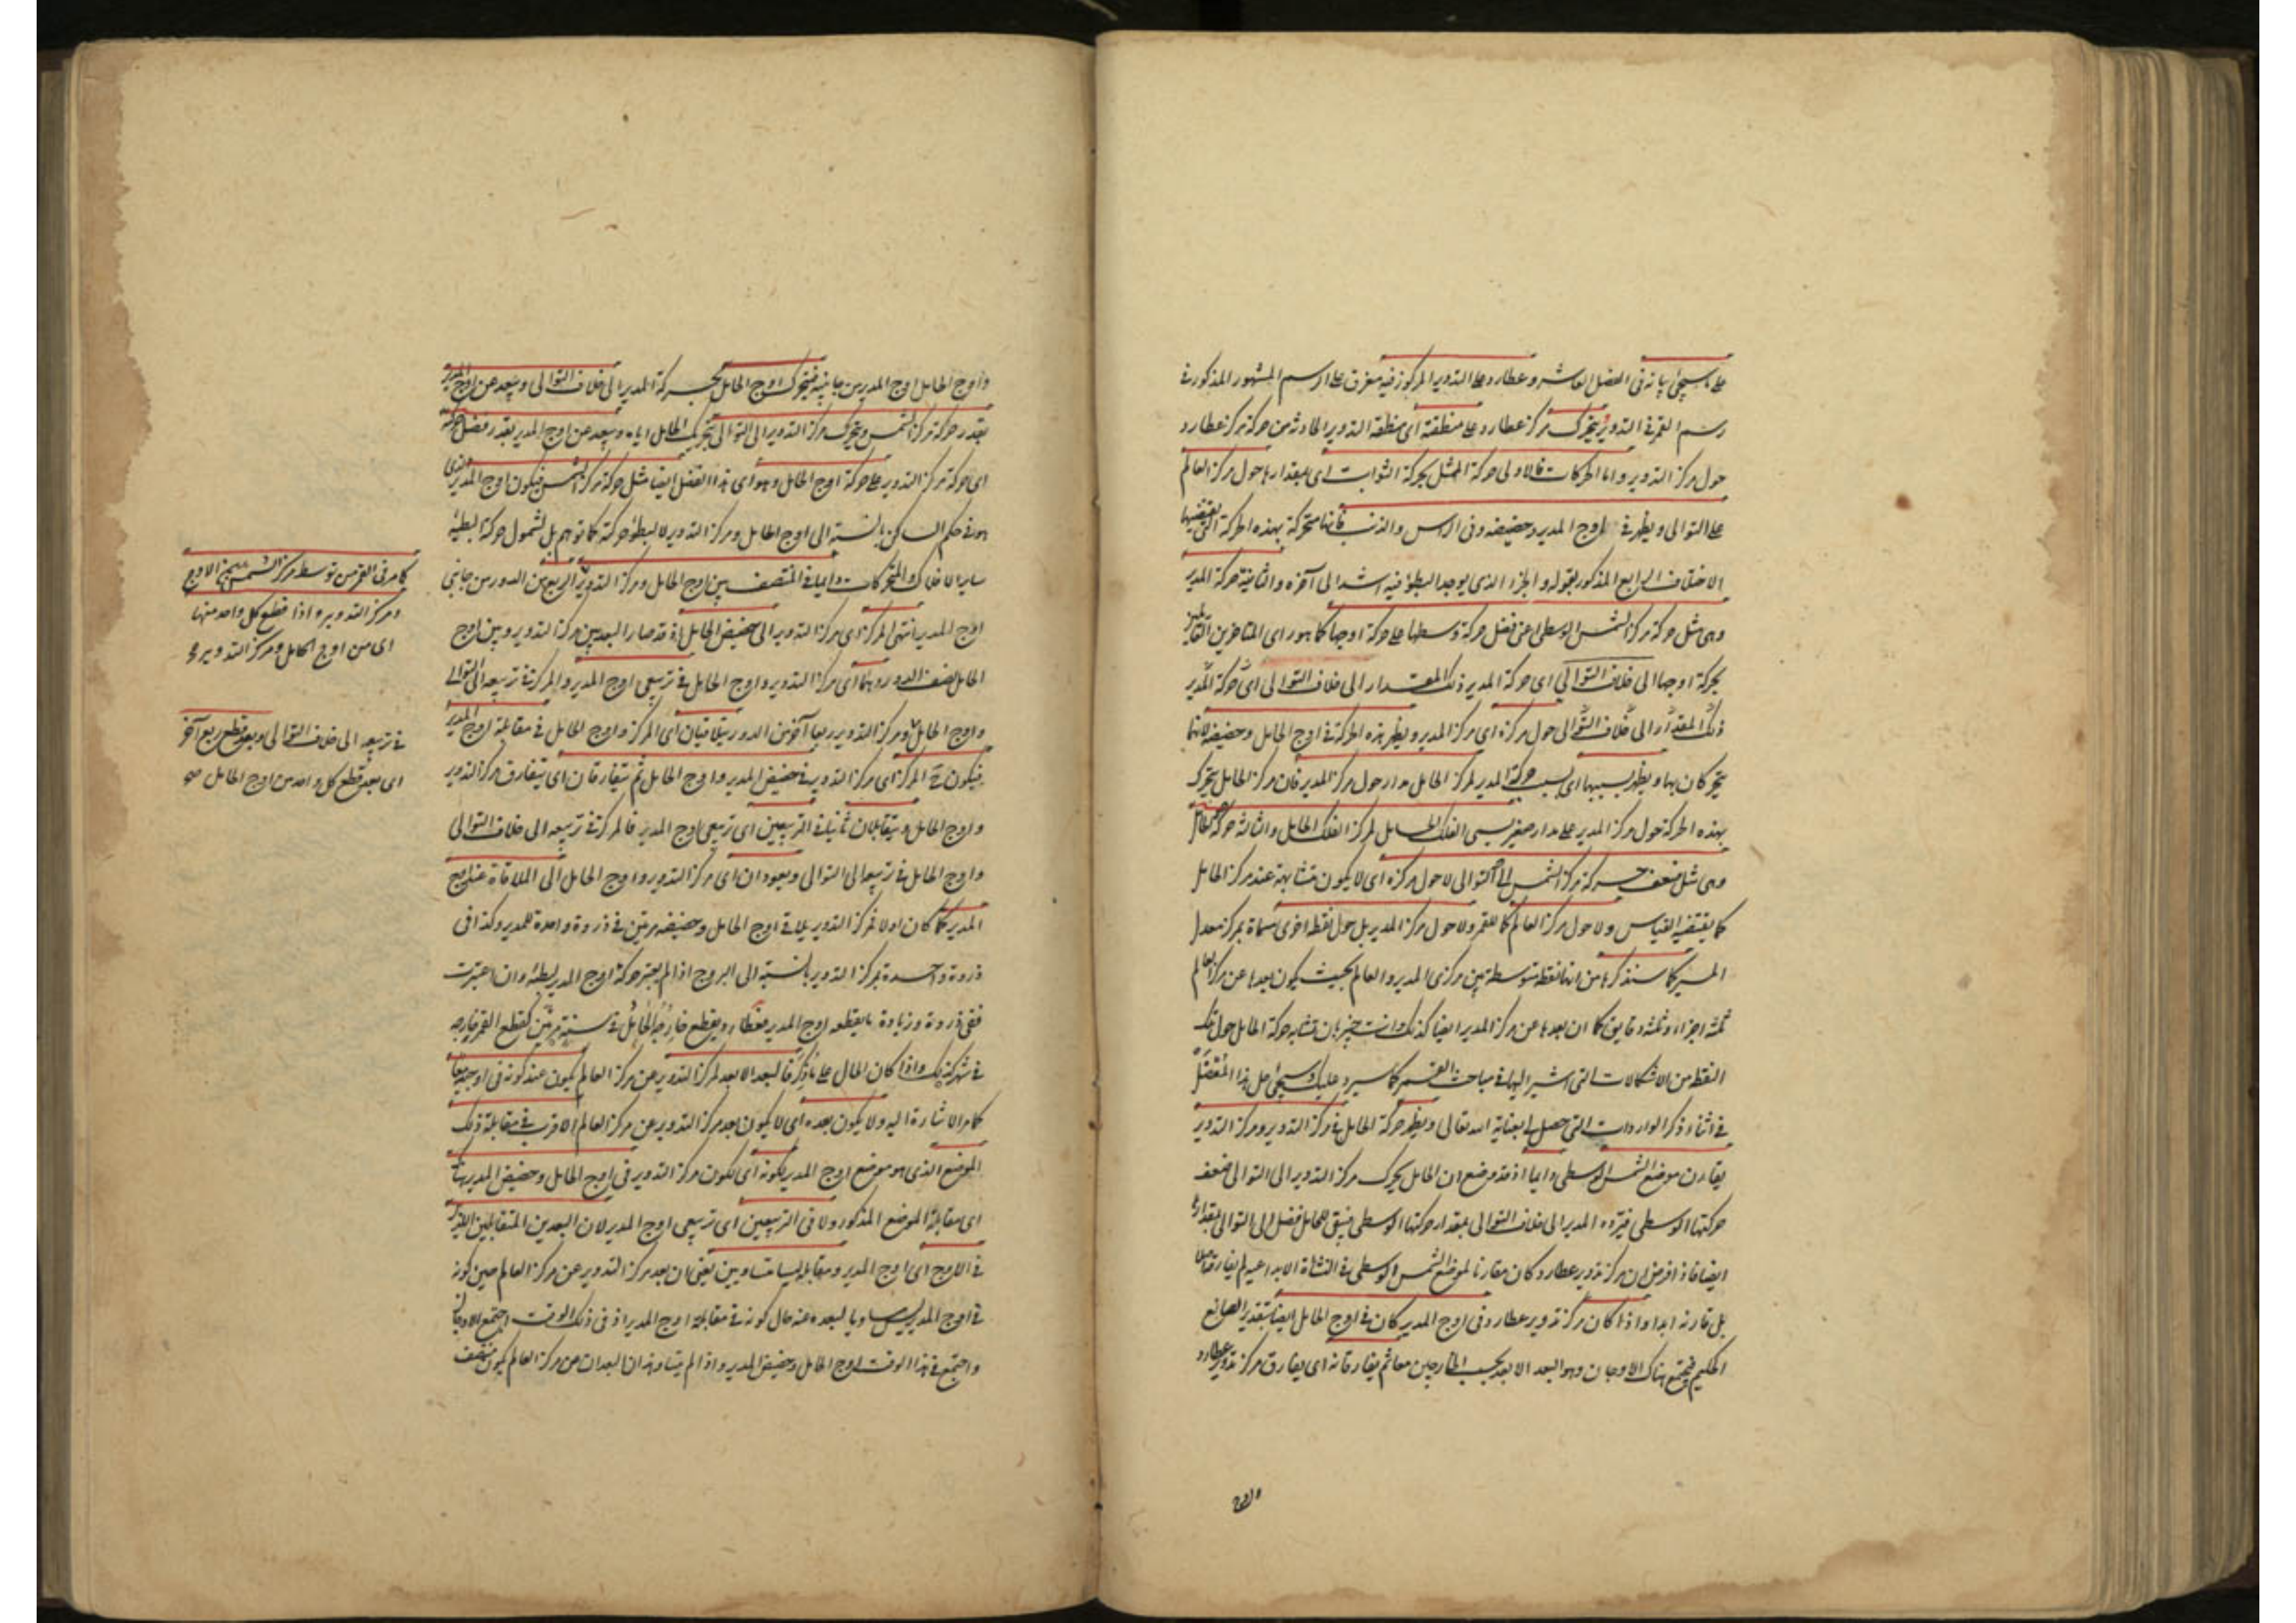 على ما سيجئ بيانه فى الفصل العاشر وعطارد على التدوير المركوز فيه مغرق على الرسم المشهور المذكور فى
رسم القمر فى التدوير يتحرك مركز عطارد على منطقته اى منطقة التدوير الحادثة من حركة مركز عطارد
حول مركز التدوير واما الحركات فالاولى حركة الممثل بحركة الثوابت اى بمقدارها حول مركز العالم
على التوالى ويظهر فى اوج المدير وحضيضه وفى الراس والذنب فانها متحركة بهذه الحركة التى يقتضيها
الاختلاف الرابع المذكور بقوله والجزء الذى يوجد البطؤ فيه اشد الى آخره والثانية حركة المدير
وهى مثل حركة مركز الشمس الوسطى اعنى فضل حركة وسطها على حركة اوجها كما هو راى المتاخرين القائلين
بحركة اوجها الى خلاف التوالى اى حركة المدير ذلك المقدار الى خلاف التوالى اى حركة المدير
ذلك المقدار الى خلاف التوالى حول مركزه اى مركز المدير ويظهر هذه الحركة فى اوج الحامل وحضيضه لانهما
يتحركان بها ويظهر بسببها اى بسبب حركة المدير لمركز الحامل مدار حول مركز المدير فان مركز الحامل يتحرك
بهذه الحركة حول مركز المدير على مدار صغير يسمى الفلك الحامل لمركز الفلك الحامل والثالثة حركة الحامل
وهى مثل ضعف حركة مركز الشمس الى التوالى لا حول مركزه اى لا يكون متشابهة عند مركز الحامل
كما يقتضيه القياس ولا حول مركز العالم كما للقمر ولا حول مركز المدير بل حول نقطة اخرى مسماة بمركز معدل
المسير كما سنذكرها من انها نقطة متوسطة بين مركزى المدير والعالم بحيث يكون بعدها عن مركز العالم
ثلثة اجزاء وثلثة دقايق كما ان بعدها عن مركز المدير ايضا كذلك وانت خبير بان تشابه حركة الحامل حول تلك
النقطة من الاشكالات التى اشير اليها فى مباحث القمر كما سيرد عليك وسيجئ حل هذا المعضل
فى اثناء ذكر الواردات التى حصل لى بعناية الله تعالى ويظهر حركة الحامل فى مركز التدوير ومركز التدوير
يقارن موضع الشمس الوسطى دايما اذ قد وضع ان الحامل يحرك مركز التدوير الى التوالى ضعف
حركتها الوسطى فيرده المدير الى خلاف التوالى بمقدار حركتها الوسطى فيبقى للحامل فضل الى التوالى بمقدارها
ايضا فاذا فرض ان مركز تدوير عطارد كان مقارنا لموضع الشمس الوسطى فى النشاة الابداعية لم يفارقه اصلا
بل قارنه ابدا واذا كان مركز تدوير عطارد فى اوج المدير كان فى اوج الحامل ايضا بتقدير الصانع
الحكيم فيجتمع هناك الاوجان وهو البعد الابعد بحسب الخارجين معا ثم يفارقانه اى يفارق مركز تدوير عطارد
واوج
واوج الحامل اوج المدير من جانبيه فيتحرك اوج الحامل بحركة المدير الى خلاف التوالى ويبعد عن اوج المدير
بقدر حركة مركز الشمس ويتحرك مركز التدوير الى التوالى بتحريك الحامل اياه ويبعد عن اوج المدير بقدر فضل حركته
اى حركة مركز التدوير على حركة اوج الحامل وهو اى هذا الفضل ايضا مثل حركة مركز الشمس فيكون اوج المدير الذى
هو فى حكم الساكن بالنسبة الى اوج الحامل ومركز التدوير لا لبطؤ حركته كما توهم بل لشمول حركته البطيئة
ساير الافلاك والمتحركات دايما فى المنتصف بين اوج الحامل ومركز التدوير الربعين الدور من جانبى
اوج المدير انتهى المركز اى مركز التدوير الى حضيض الحامل اذ قد صار البعد بين مركز التدوير وبين اوج
الحامل نصف الدور وهما اى مركز التدوير واوج الحامل فى تربيعى اوج المدير والمركز فى تربيعه الى التوالى
واوج الحامل ومركز التدوير ربعا آخر من الدور يتلاقيان اى المركز واوج الحامل فى مقابلة اوج المدير
فيكون ح المركز اى مركز التدوير فى حضيض المدير واوج الحامل ثم يتفارقان اى يتفارق مركز التدوير
واوج الحامل ويتقابلان ثانيا فى التربيعين اى تربيعى اوج المدير فالمركز فى تربيعه الى خلاف التوالى
واوج الحامل فى تربيعه الى التوالى ويعودان اى مركز التدوير واوج الحامل الى الملاقاة عند اوج
المدير كما كان اولا فمركز التدوير يلاقى اوج الحامل وحضيضه مرتين فى ذروة واحدة للمدير وكذا فى
ذروة واحدة لمركز التدوير بالنسبة الى البروج اذا لم يعتبر حركة اوج المدير لبطئه وان اعتبرت
ففى ذروة وزيادة ما يقطعه اوج المدير فعطارد يقطع خارجه الحامل فى سنة مرتين كقطع القمر خارجه
فى شهر كذلك واذا كان الحال على ما ذكر فالبعد الابعد لمركز التدوير عن مركز العالم يكون عند كونه فى اوجيه معا
كما مر الاشارة اليه ولا يكون بعده اى لا يكون بعد مركز التدوير عن مركز العالم الاقرب فى مقابلة ذلك
الموضع الذى هو موضع اوج المدير لكونه اى لكون مركز التدوير فى اوج الحامل وحضيض المدير هناك
اى مقابلة الموضع المذكور ولا فى التربيعين اى تربيعى اوج المدير لان البعدين المتقابلين اللذين
فى الاوج اى اوج المدير ومقابله ليسا متساويين يعنى ان بعد مركز التدوير عن مركز العالم حين كونه
فى اوج المدير ليس مساويا لبعده عنه حال كونه فى مقابلة اوج المدير اذ فى ذلك الوقت اجتمع الاوجان
واجتمع فى هذا الوقت اوج الحامل وحضيض المدير واذا لم يتساو هذان البعدان عن مركز العالم يكون منتصف
كما مر فى القمر من توسط مركز الشمس بين الاوج
ومركز التدويره اذا قطع كل واحد منهما
اى من اوج الحامل ومركز التدوير
فى تربيعه الى خلاف التوالى وبعد قطع ربع آخر
اى بعد قطع كل واحد من اوج الحامل صح